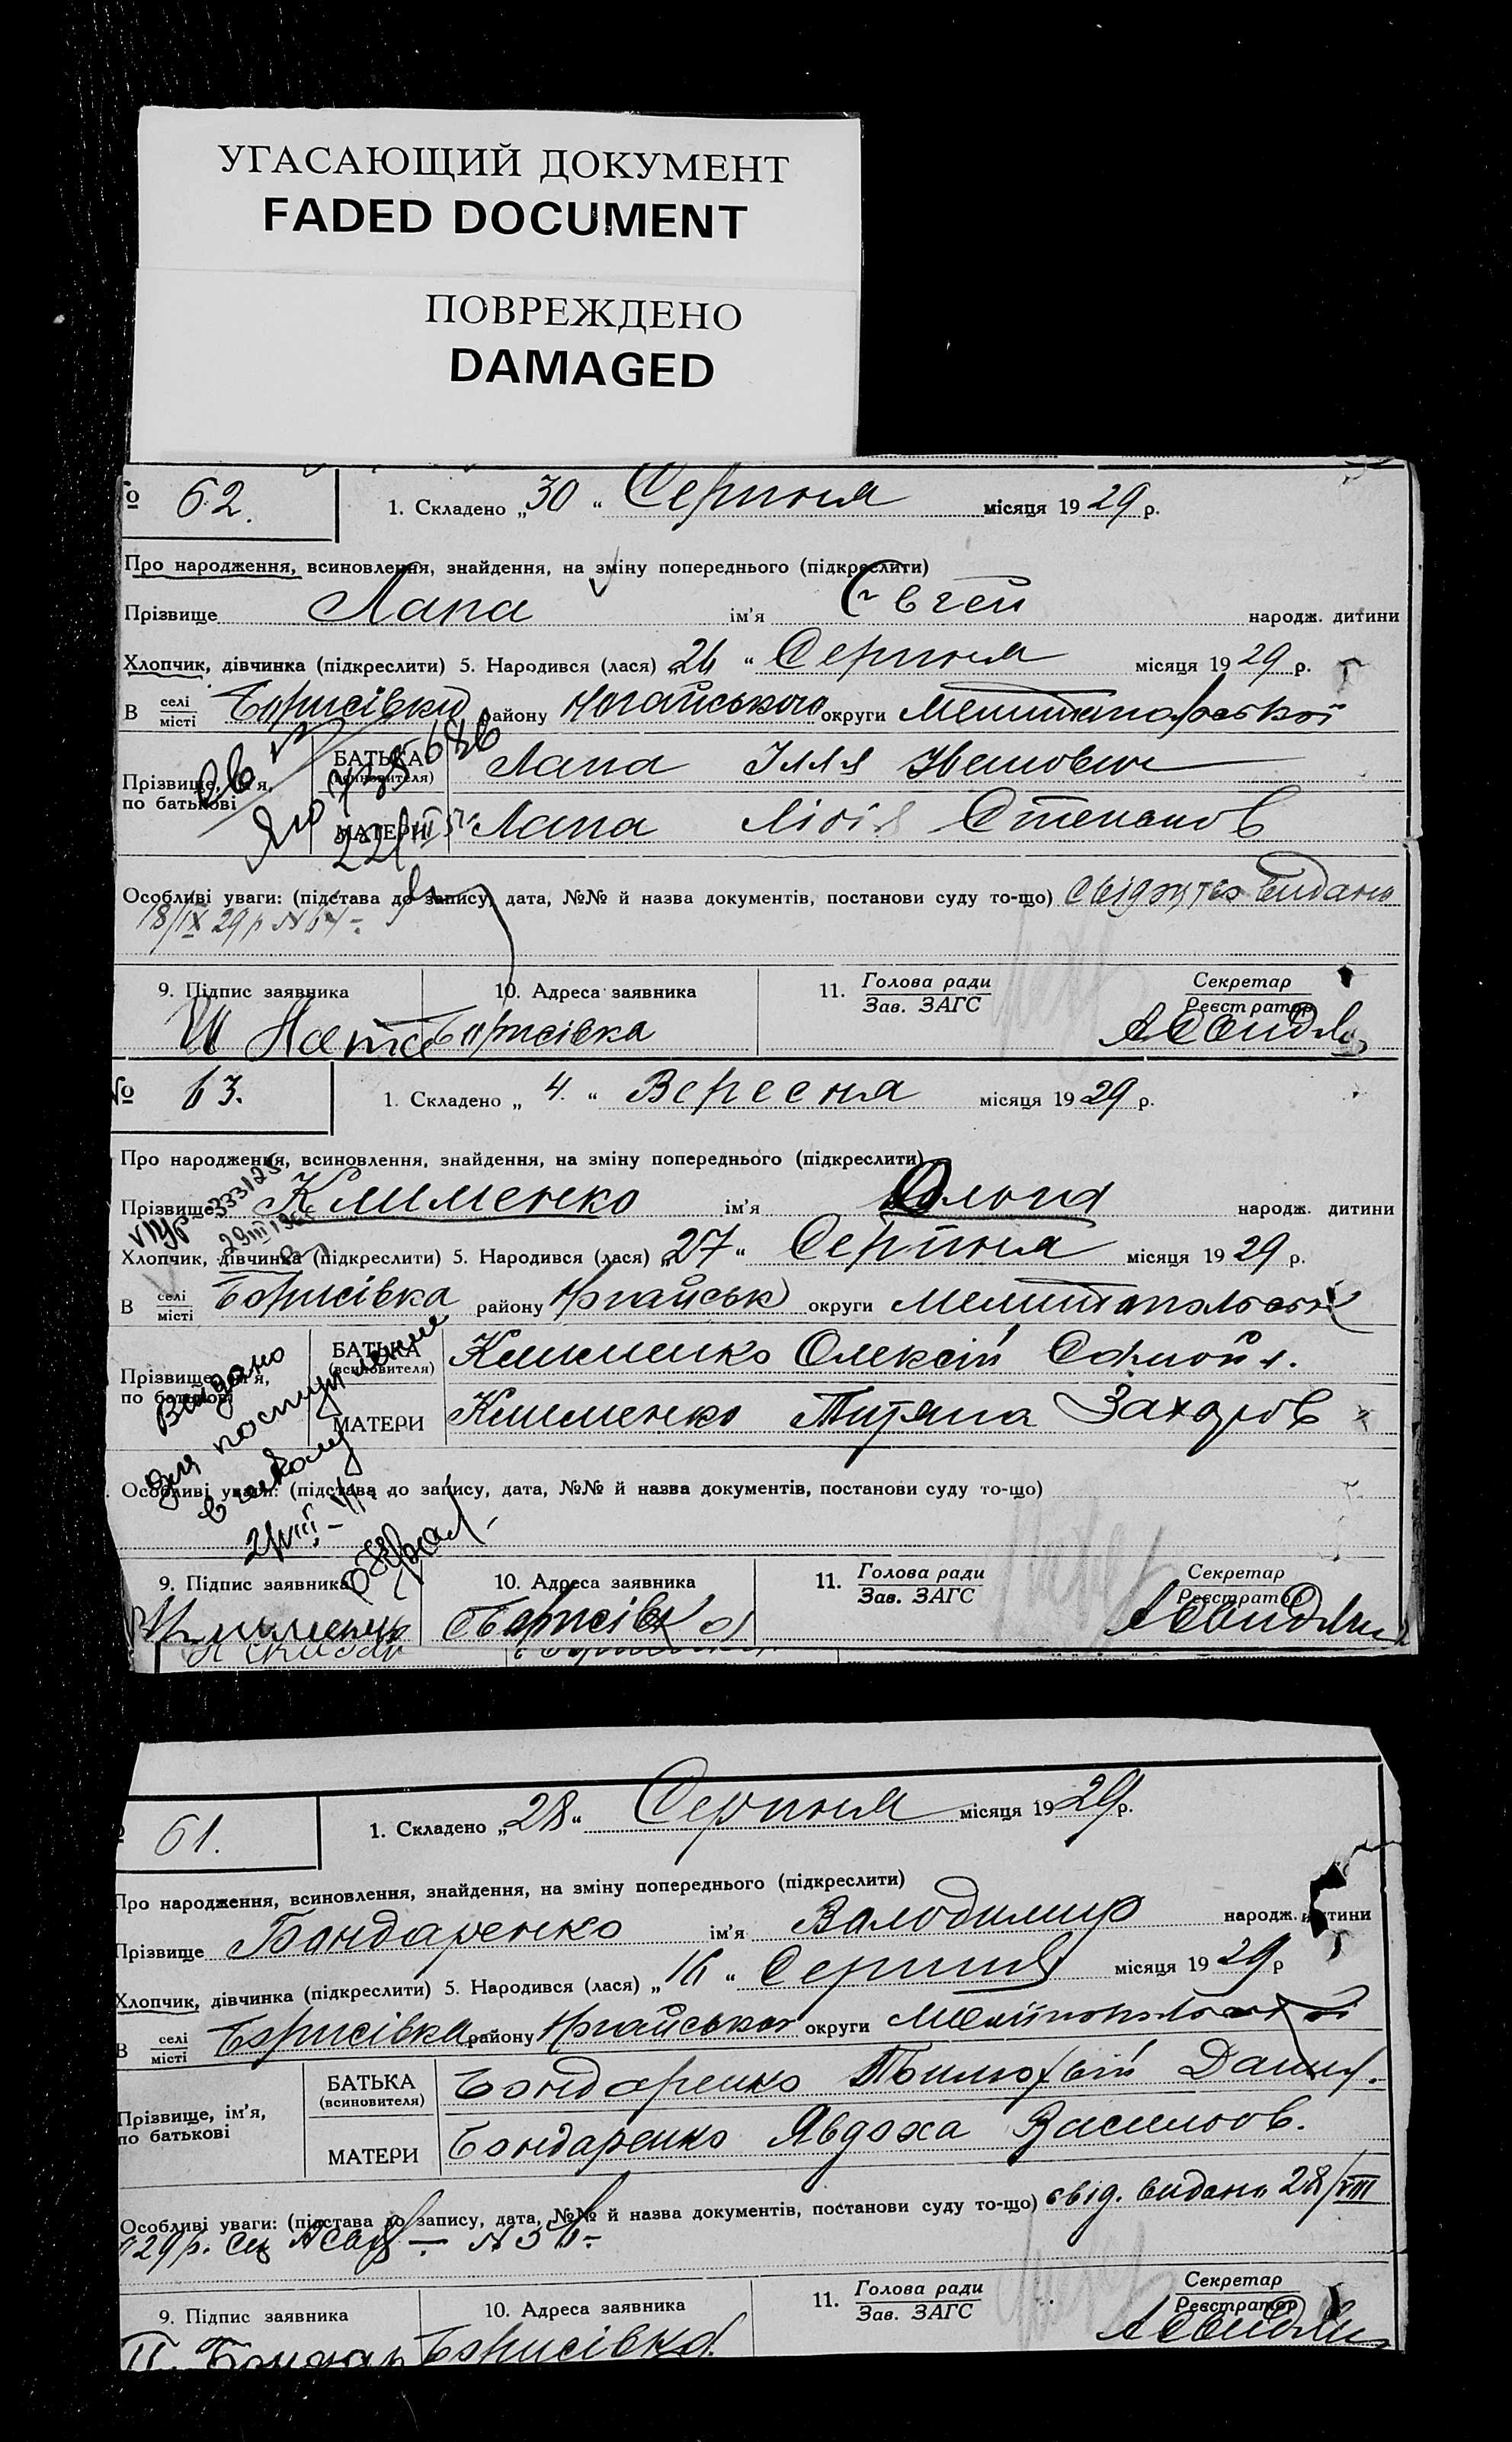 УГАСАЮЩИЙ ДОКУМЕНТ
FADED DOCUMENT
ПОВРЕЖДЕНО
DAMAGED
№ 62.
1. Складено „30“ Серпня місяця 1929 р.
Про народження, всиновлення, знайдення, на зміну попереднього (підкреслити)
Прізвище Лапа ім'я Євген народж. дитини
Хлопчик, дівчинка (підкреслити) 5. Народився (лася) „26“ Серпня місяця 1929 р.
В селі місті Борисівки району Ногайського округи Мелитопольської
Прізвище, ім'я, по батькові
БАТЬКА (всиновителя) Лапа Ілля Иванович
МАТЕРИ Лапа Лідія Степанов
Особливі уваги: (підстава до запису, дата, №№ й назва документів, постанови суду то-що) свідоцтво видано
18/IX 29 р №
9. Підпис заявника
10. Адреса заявника
11. Голова ради
Зав. ЗАГС
Секретар
Реєстратор
Борисівка
№ 63.
1. Складено „4.“ Вересня місяця 1929 р.
Про народження, всиновлення, знайдення, на зміну попереднього (підкреслити)
Прізвище Клименко ім'я Ольга народж. дитини
Хлопчик, дівчинка (підкреслити) 5. Народився (лася) „27“ Серпня місяця 1929 р.
В селі місті Борисівка району Ногайськ округи Мелитопольськ
Прізвище, ім'я, по батькові
БАТЬКА (всиновителя) Клименко Олексій
МАТЕРИ Клименко Титяна Захаров
Видано
для поступления
в школу
Особливі уваги: (підстава до запису, дата, №№ й назва документів, постанови суду то-що)
9. Підпис заявника
10. Адреса заявника
11. Голова ради
Зав. ЗАГС
Секретар
Реєстратор
Борисівка
61.
1. Складено „28“ Серпня місяця 1929 р.
Про народження, всиновлення, знайдення, на зміну попереднього (підкреслити)
Прізвище Бондаренко ім'я Володимир народж. дитини
Хлопчик, дівчинка (підкреслити) 5. Народився (лася) „16“ Серпня місяця 1929 р
В селі місті Борисівка району Ногайського округи
Прізвище, ім'я, по батькові
БАТЬКА (всиновителя) Бондаренко Тимофій
МАТЕРИ Бондаренко Явдоха Васильов.
Особливі уваги: (підстава до запису, дата, №№ й назва документів, постанови суду то-що) свід. видано 28/VIII
29 р.
9. Підпис заявника
10. Адреса заявника
11. Голова ради
Зав. ЗАГС
Секретар
Реєстратор
Борисівка